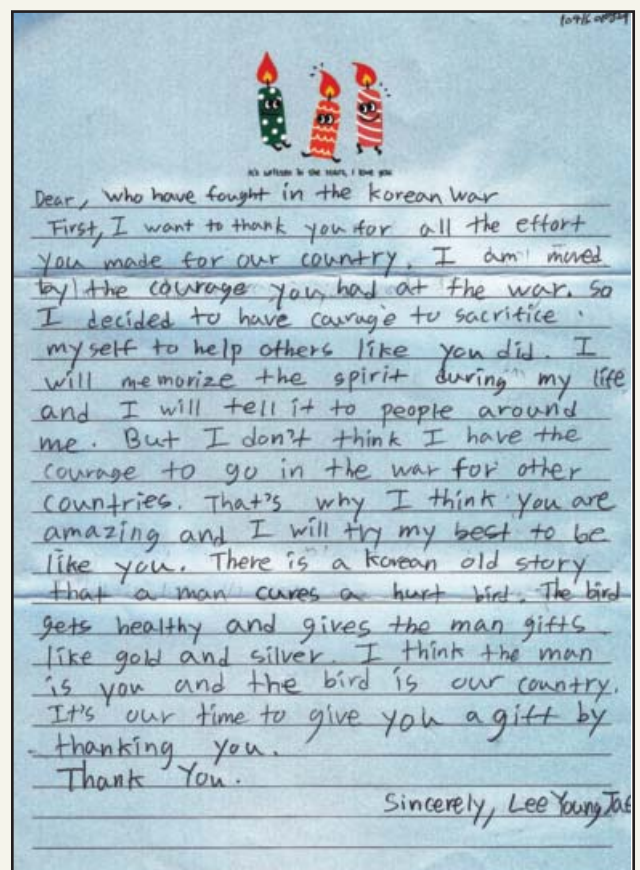 It's written in the stars, I love you
Dear, who have fought in the korean war
First, I want to thank you for all the effort
you made for our country. I am moved
by the courage you had at the war. so
I decided to have courage to sacrifice
myself to help others like you did. I
will memorize the spirit during my life
and I will tell it to people around
me. But I don't think I have the
courage to go in the war for other
countries. That's why I think you are
amazing and I will try my best to be
like you. There is a korean old story
that a man cures a hurt bird. The bird
gets healthy and gives the man gifts
like gold and silver. I think the man
is you and the bird is our country.
It's our time to give you a gift by
thanking you.
Thank You.
Sincerely, Lee Young Tae